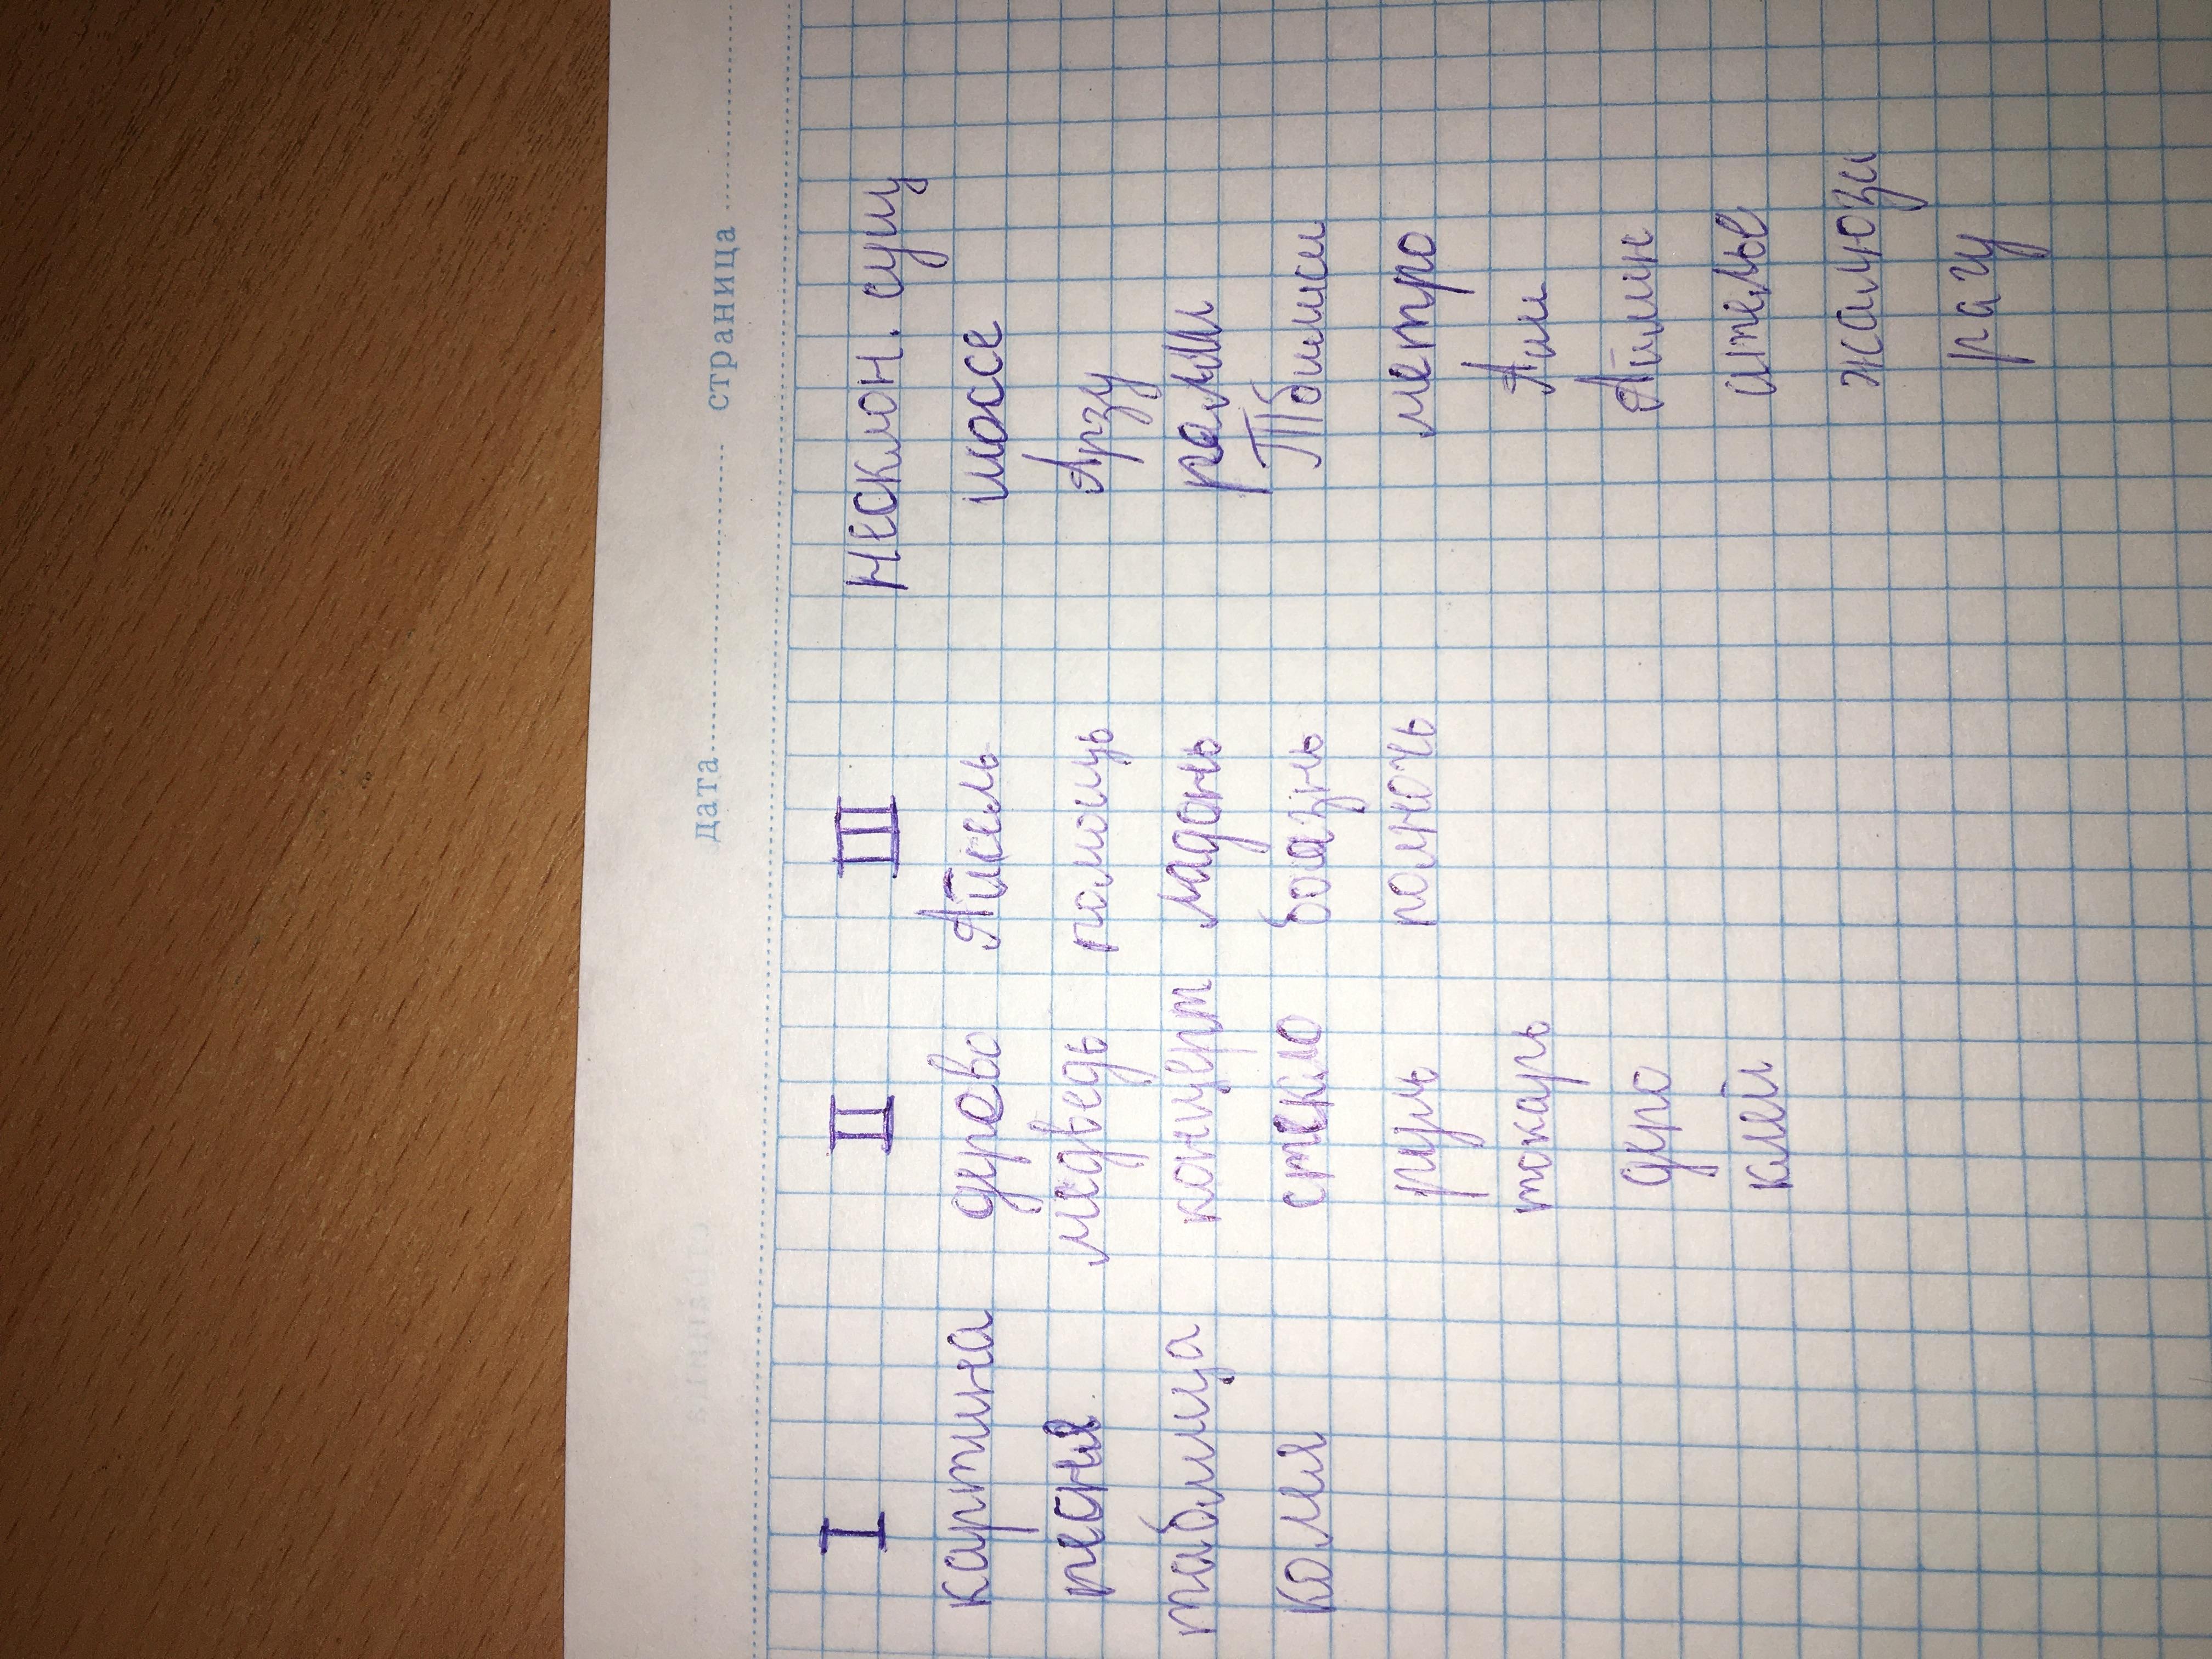 дата страница
I II III Несклон. сущ
картина дерево Айсель шоссе
песня медведь помощь Арзу
таблица концерт ладонь
Коля стекло боязнь Тбилиси
руль полночь метро
токарь Али
Айтмик
клей ателье
жалюзи
рагу